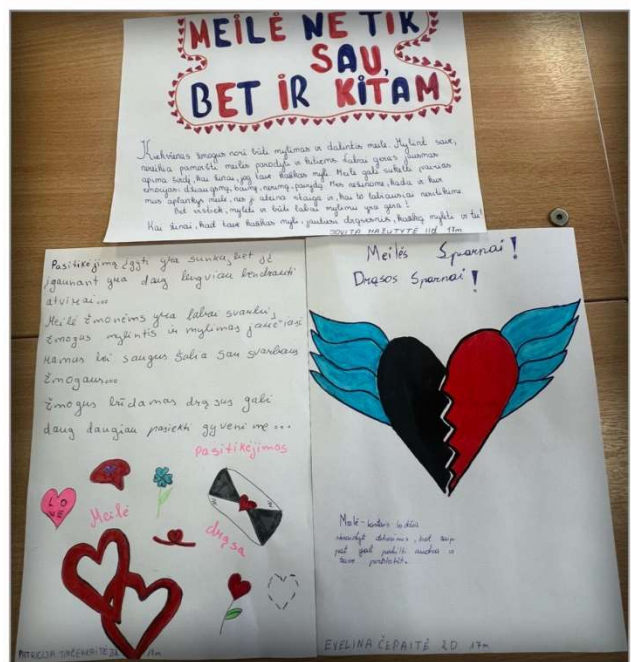 MEILĖ NE TIK
SAU,
BET IR KITAM
Kiekvienas žmogus nori būti mylimas ir dalintis meile. Mylint save,
nereikia pamiršti meilės parodyti ir kitiems. Labai geras jausmas
apima širdį, kai žinai, jog tave kažkas myli. Meilė gali sukelti įvairias
emocijas: džiaugsmą, baimę, nerimą, pavydą. Mes nežinome, kada ir kur
mus aplankys meilė, nes ji ateina staiga ir, kai to labiausiai nesitikime.
Bet vistiek, mylėti ir būti labai mylimu yra gera!
Kai žinai, kad tave kažkas myli, jautiesi drąsesnis, kažką mylėti ir tu!
JOVITA 17m
Pasitikėjimą įgyti yra sunku, bet jį
įgaunant yra daug lengviau bendrauti
atvirai...
Meilė žmonėms yra labai svarbi,
žmogus mylintis ir mylimas jaučiasi
ramus bei saugus šalia sau svarbaus
žmogaus...
Žmogus būdamas drąsus gali
daug daugiau pasiekti gyvenime...
Pasitikėjimas
LOVE
Meilė
drąsa
PATRICIJA 17m
Meilės Sparnai!
Drąsos Sparnai!
Meilė-
skaudyt , bet taip
pat gali
save
EVELINA ČEPAITĖ 2D 17m